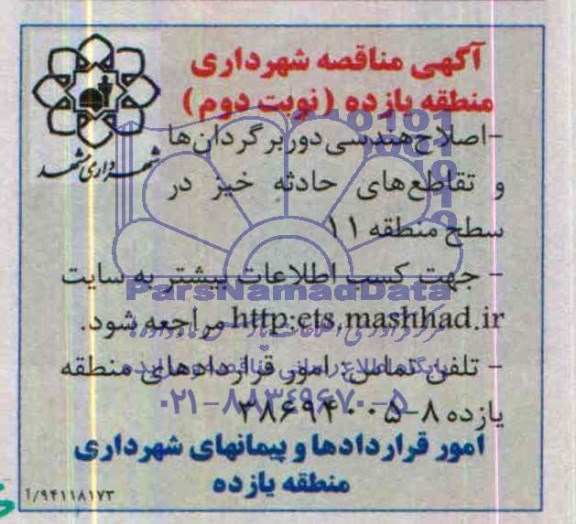 آگهی مناقصه شهرداری
منطقه یازده (نوبت دوم)
شهرداری مشهد
-اصلاح هندسی دوربرگردان‌ها
و تقاطع‌های حادثه خیز در
سطح منطقه ۱۱
- جهت کسب اطلاعات بیشتر به سایت
ParsNamadData
http:ets.mashhad.ir مراجعه شود.
- تلفن تماس: امور قراردادهای منطقه
یازده ۸-۳۸۶۹۴۰۰۵
۰۲۱-۸۸۳۴۹۶۷۰-۵
امور قراردادها و پیمانهای شهرداری
منطقه یازده
۹۴۱۱۸۱۷۳/آ